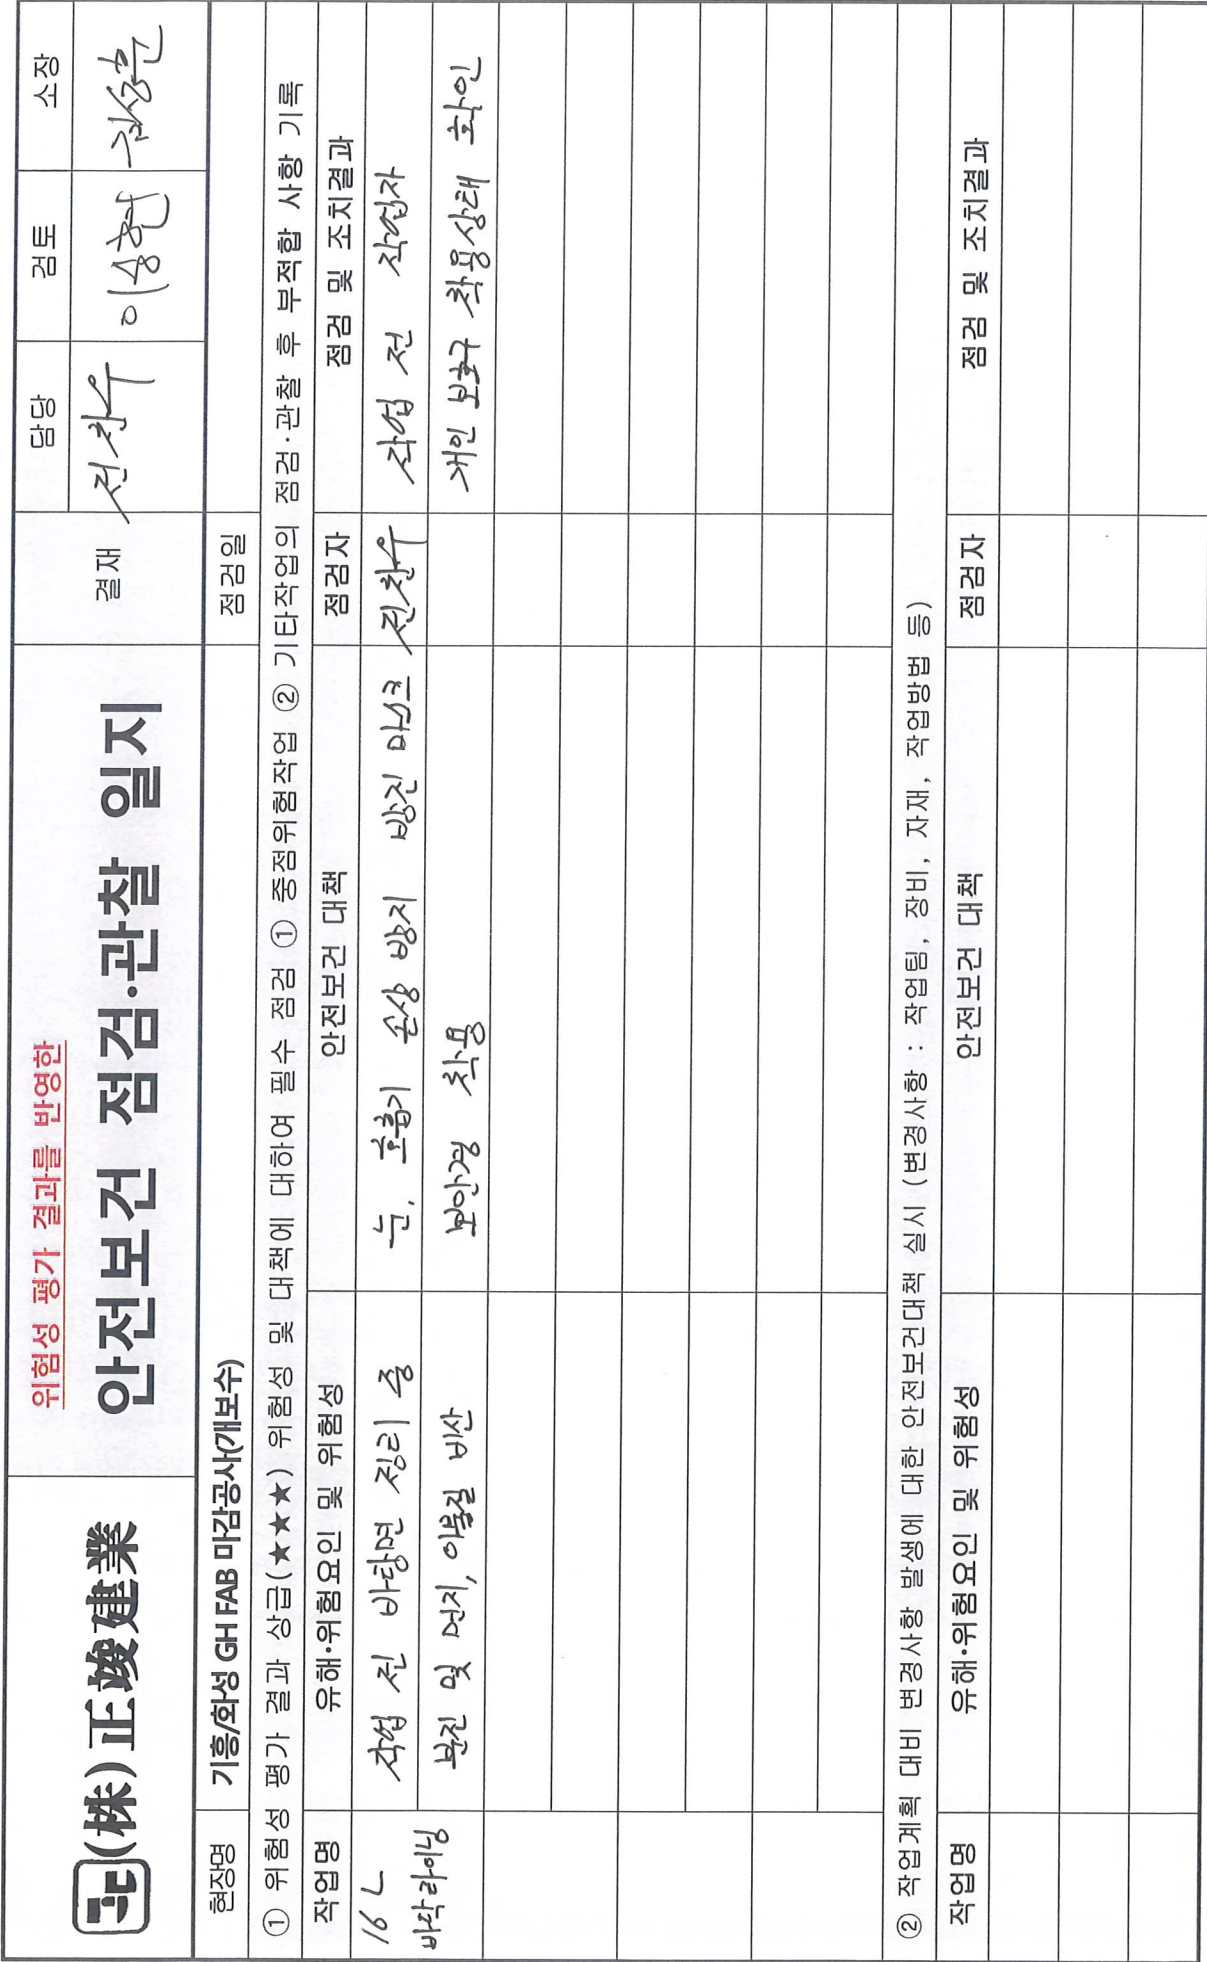 (株)正竣建業
위험성 평가 결과를 반영한
안전보건 점검·관찰 일지
결재
담당
검토
소장
전찬우
이승현
현장명
기흥/화성 GH FAB 마감공사(개보수)
점검일
① 위험성 평가 결과 상급(★★★) 위험성 및 대책에 대하여 필수 점검 ① 중점위험작업 ② 기타작업의 점검·관찰 후 부적합 사항 기록
작업명
유해·위험요인 및 위험성
안전보건 대책
점검자
점검 및 조치결과
16 L
작업 전 바탕면 정리 중
눈, 호흡기 손상 방지 방진 마스크
전찬우
작업 전 작업자
바닥라이닝
분진 및 먼지, 이물질 비산
보안경 착용
개인 보호구 착용상태 확인
② 작업계획 대비 변경사항 발생에 대한 안전보건대책 실시 (변경사항 : 작업팀, 장비, 자재, 작업방법 등)
작업명
유해·위험요인 및 위험성
안전보건 대책
점검자
점검 및 조치결과